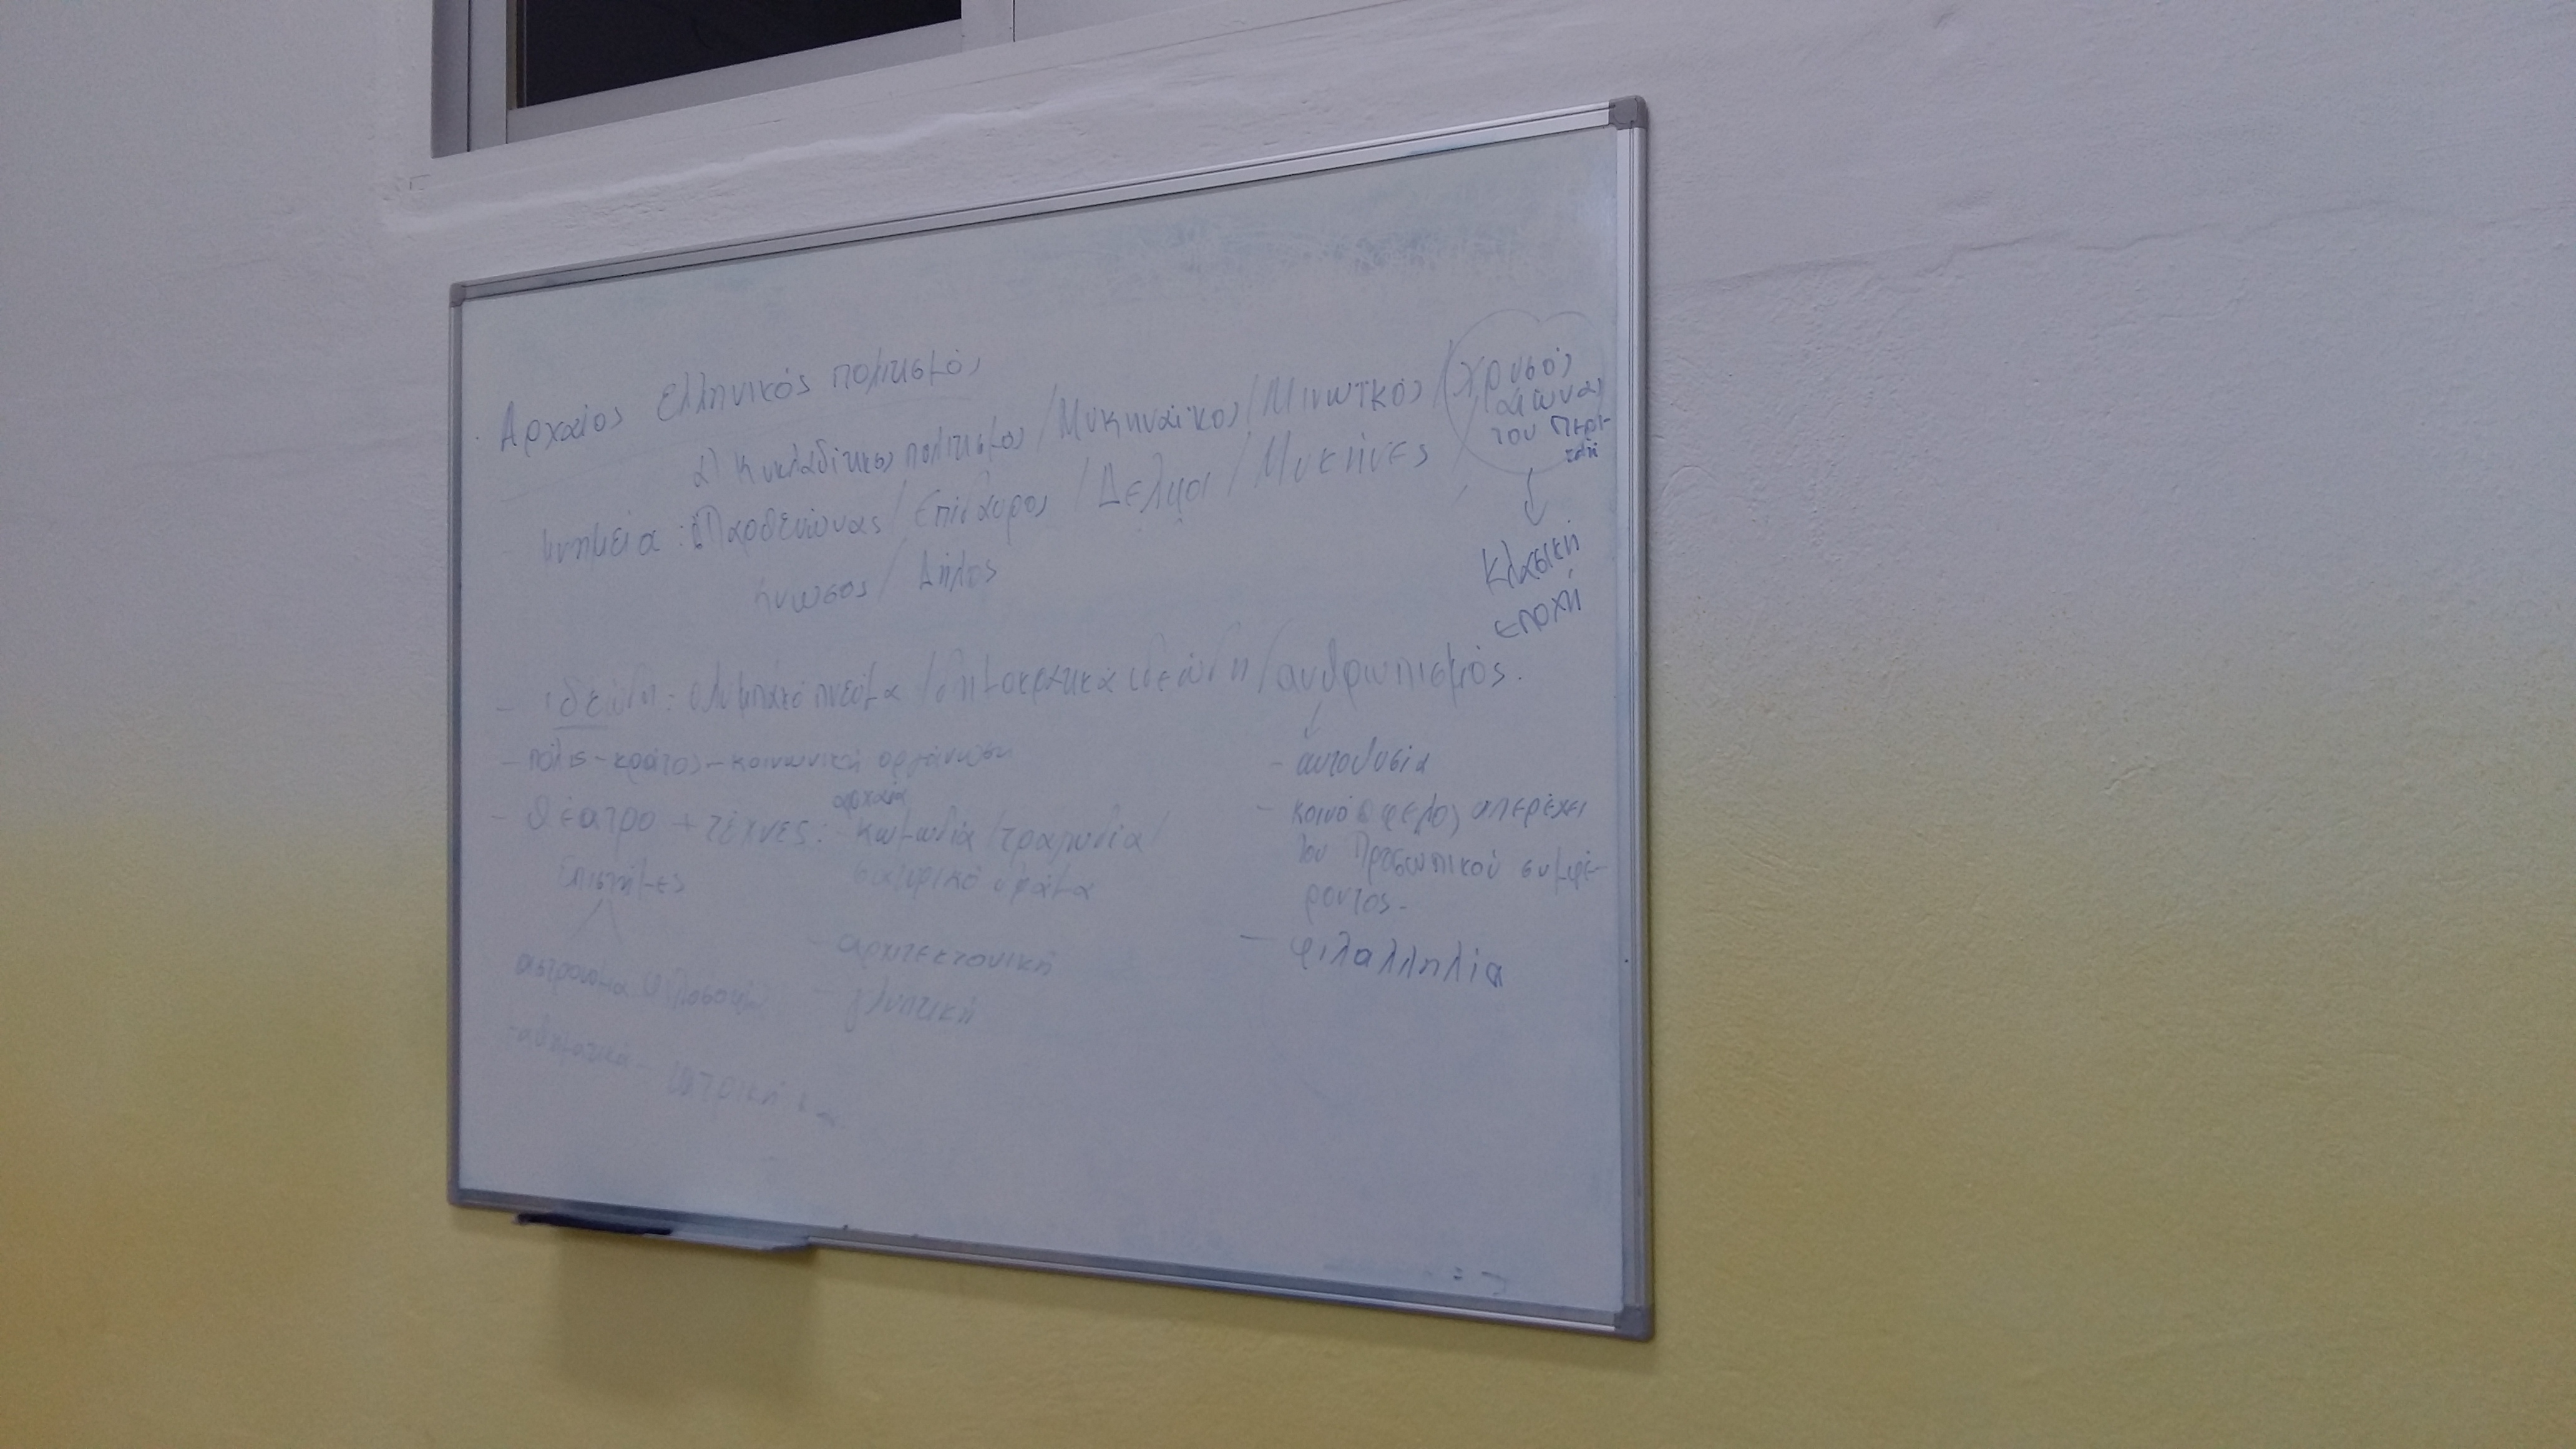 Αρχαίος Ελληνικός πολιτισμός
α) Κυκλαδίτικος πολιτισμός / Μυκηναϊκός / Μινωικός / χρυσός
αιώνας
του Περι-
κλή
μνημεία: Παρθενώνας / Επίδαυρος / Δελφοί / Μυκήνες /
Κνωσος / Δήλος
Κλασική
εποχή
- ιδεώδη: ολυμπιακό πνεύμα / δημοκρατικά ιδεώδη / ανθρωπισμός.
- πόλις - κράτος - κοινωνική οργάνωση
- θέατρο + τέχνες: αρχαία
κωμωδία / τραγωδία /
επιστήμες
σατυρικό δράμα
- αρχιτεκτονική
- γλυπτική
αστρονομία φιλοσοφία
ιατρική
- αυτοθυσία
- κοινό όφελος υπερέχει
του προσωπικού συμφέ-
ροντος.
- φιλαλληλία